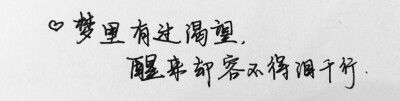 ♡梦里有过渴望,
醒来却容不得泪千行.